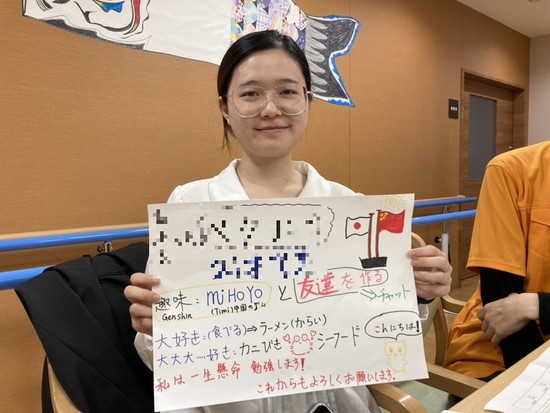 趣味: miHoYo と 友達を作る
Genshin (Timi)中国のゲーム ⇒チャット
大好き:(食でる)⇒ラーメン(からい)
大大大....好き:カニびき シーフード こんにちは!
私は一生懸命 勉強します!
これからもよろしくお願いします。